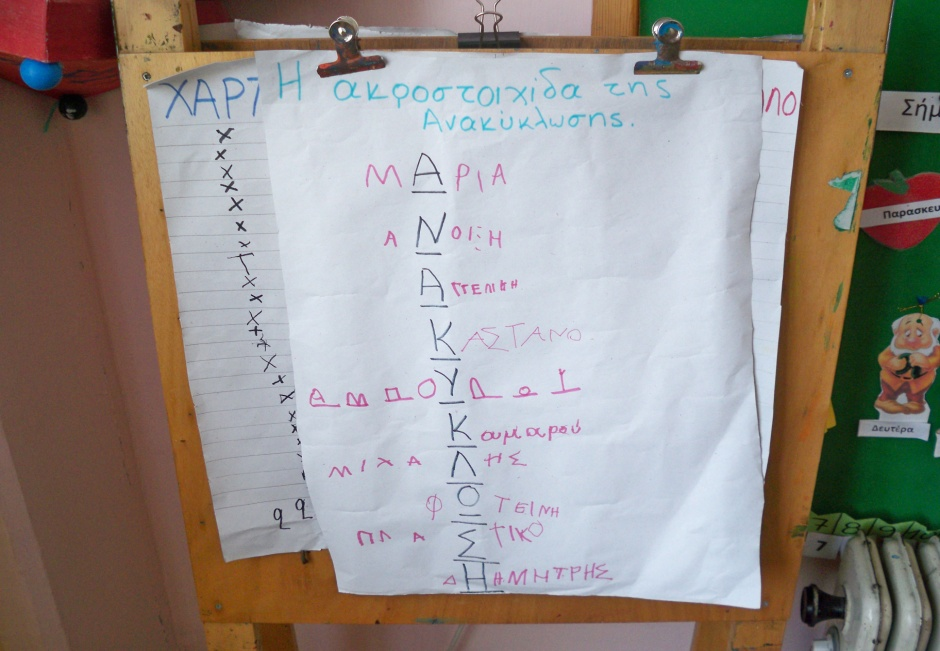 ΧΑΡΤ
Η ακροστοιχίδα της
Ανακύκλωσης.
ΜΑΡΙΑ
ΑΝΟΙΞΗ
ΚΑΣΤΑΝΟ
Κουμπαρού
ΜΙΧΑΛΗΣ
ΦΟΤΕΙΝΗ
ΠΛΑΣΤΙΚΟ
ΔΗΑΜΗΤΡΗΣ
Σήμ
Παρασκευ
Δευτέρα
7/8/9
7